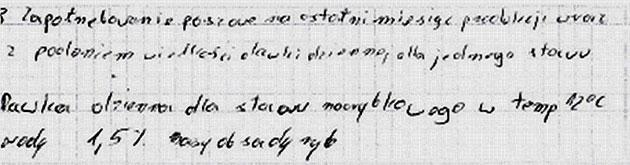 3 Zapotrzebowanie paszowe na ostatni miesiąc produkcji wraz
z podaniem wielkości dawki dziennej dla jednego stawu
Dawka dzienna dla stawu narybkowego w temp 12°C
wody 1,5% masy obsady ryb